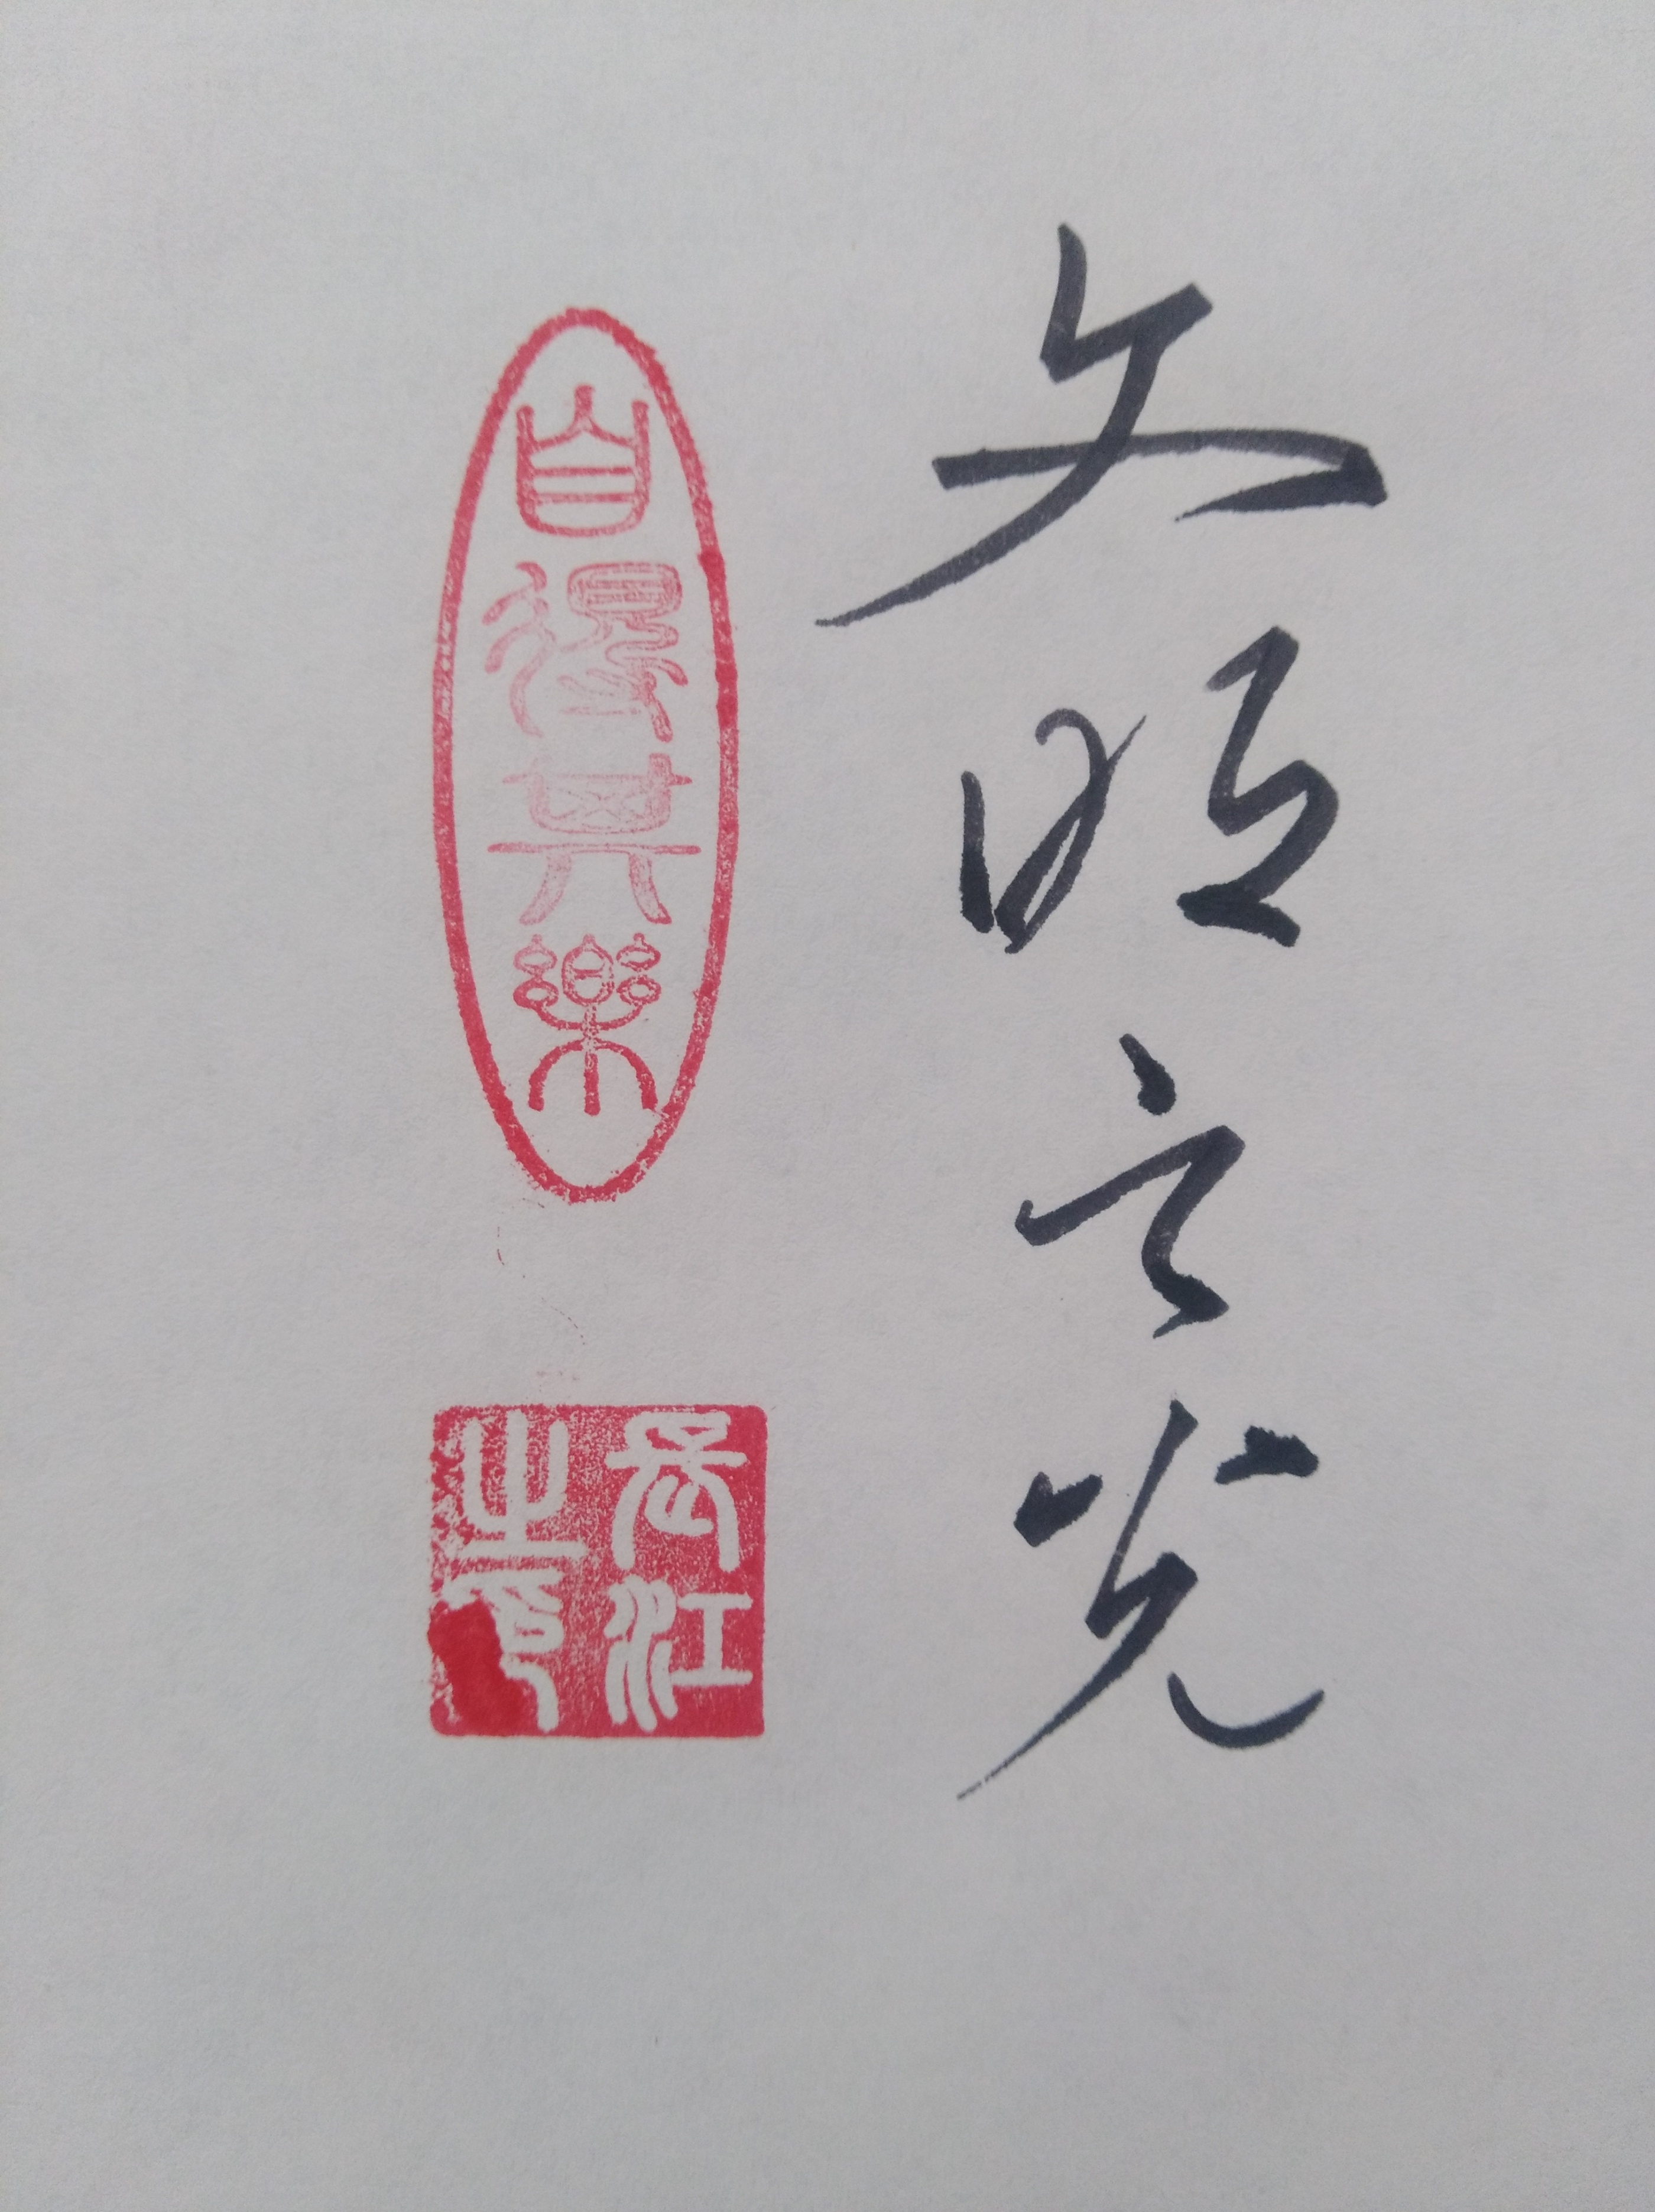 文明之光
自得其樂
長江
之印